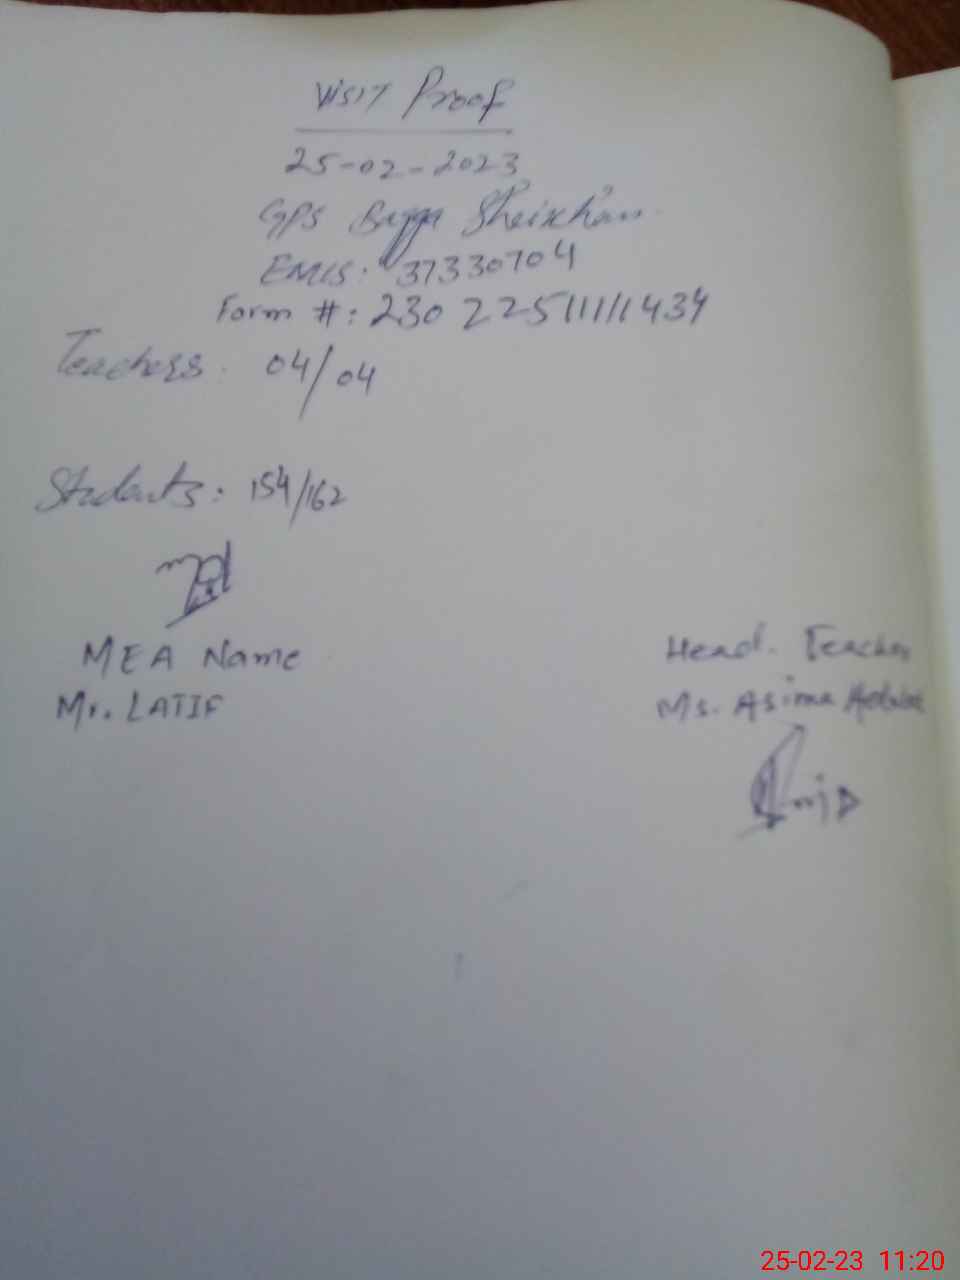 Visit Proof
25-02-2023
GPS Bagga Sheikhan
EMIS: 37330704
Form #: 230 22511111434
Teachers: 04/04
Students: 154/162
MEA Name
Mr. LATIF
Head. Teacher
Ms. Asima
25-02-23 11:20